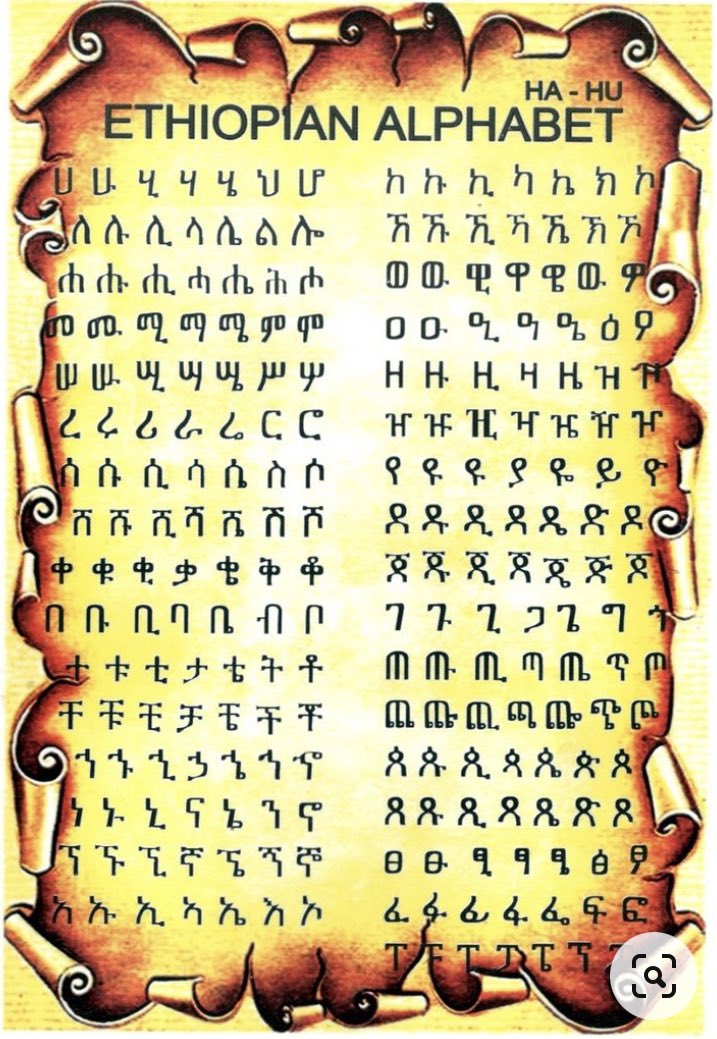 HA - HU
ETHIOPIAN ALPHABET
ሀ ሁ ሂ ሃ ሄ ህ ሆ
ለ ሉ ሊ ላ ሌ ል ሎ
ሐ ሑ ሒ ሓ ሔ ሕ ሖ
መ ሙ ሚ ማ ሜ ም ሞ
ሠ ሡ ሢ ሣ ሤ ሥ ሦ
ረ ሩ ሪ ራ ሬ ር ሮ
ሰ ሱ ሲ ሳ ሴ ስ ሶ
ሸ ሹ ሺ ሻ ሼ ሽ ሾ
ቀ ቁ ቂ ቃ ቄ ቅ ቆ
በ ቡ ቢ ባ ቤ ብ ቦ
ተ ቱ ቲ ታ ቴ ት ቶ
ቸ ቹ ቺ ቻ ቼ ች ቾ
ኀ ኁ ኂ ኃ ኄ ኅ ኆ
ነ ኑ ኒ ና ኔ ን ኖ
ኘ ኙ ኚ ኛ ኜ ኝ ኞ
አ ኡ ኢ ኣ ኤ እ ኦ
ከ ኩ ኪ ካ ኬ ክ ኮ
ኸ ኹ ኺ ኻ ኼ ኽ ኾ
ወ ዉ ዊ ዋ ዌ ው ዎ
ዐ ዑ ዒ ዓ ዔ ዕ ዖ
ዘ ዙ ዚ ዛ ዜ ዝ ዞ
ዠ ዡ ዢ ዣ ዤ ዥ ዦ
የ ዩ ዩ ያ ዬ ይ ዮ
ደ ዱ ዲ ዳ ዴ ድ ዶ
ጀ ጁ ጂ ጃ ጄ ጅ ጆ
ገ ጉ ጊ ጋ ጌ ግ ጎ
ጠ ጡ ጢ ጣ ጤ ጥ ጦ
ጨ ጩ ጪ ጫ ጬ ጭ ጮ
ጰ ጱ ጲ ጳ ጴ ጵ ጶ
ጸ ጹ ጺ ጻ ጼ ጽ ጾ
ፀ ፁ ፂ ፃ ፄ ፅ ፆ
ፈ ፉ ፊ ፋ ፌ ፍ ፎ
ፐ ፑ ፒ ፓ ፔ ፕ